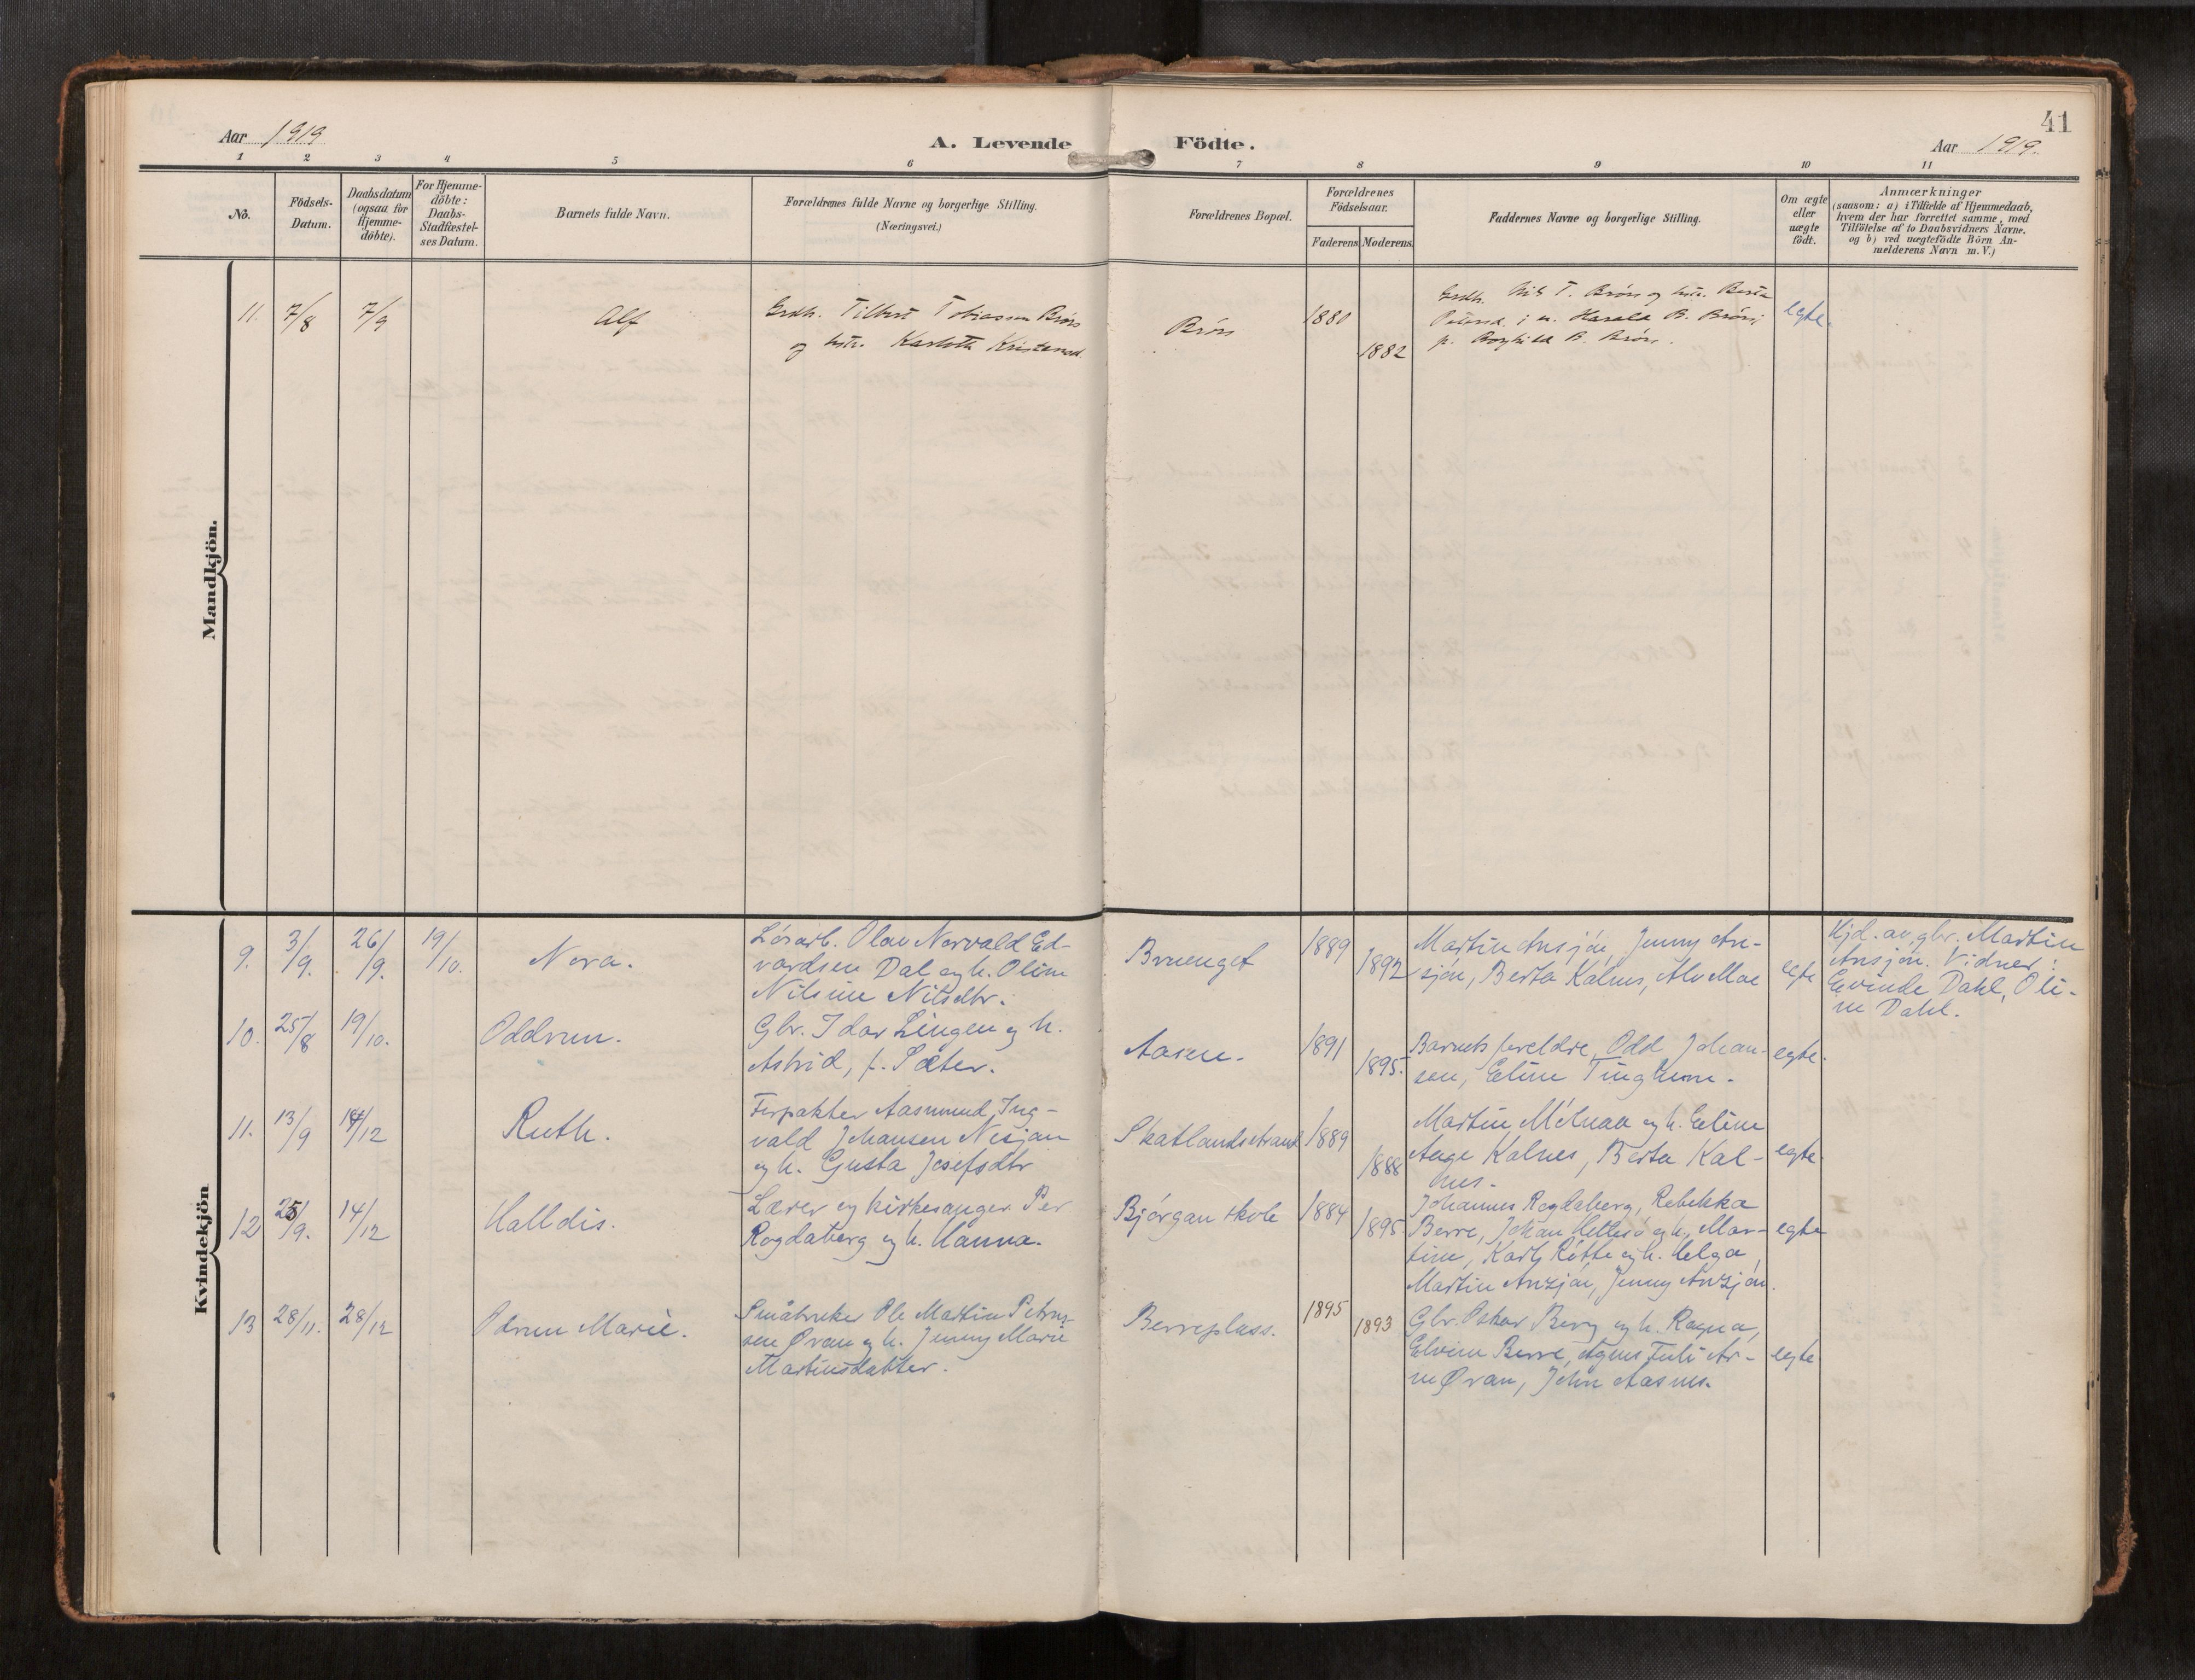 41
Aar 1919
A. Levende Födte.
Aar 1919.
1 2 3 4 5 6 7 8 9 10 11
No.
Födsels-
Datum.
Daabsdatum
(ogsaa for
Hjemme-
döbte).
For Hjemme-
döbte:
Daabs-
Stadfæstel-
ses Datum.
Barnets fulde Navn.
Forældrenes fulde Navne og borgerlige Stilling.
(Næringsvei.)
Forældrenes Bopæl.
Forældrenes
Födselsaar.
Faderens Moderens
Faddernes Navne og borgerlige Stilling.
Om ægte
eller
uægte
födt.
Anmærkninger
(saasom: a) i Tilfælde af Hjemmedaab,
hvem der har forrettet samme, med
Tilföielse af to Daabsvidners Navne,
og b) ved uægtefödte Börn An-
melderens Navn m. V.)
Mandkjön.
11. 7/8 7/9
Alf
Grdb. Tilbert Tobiassen Brörs
og hstr. Karlotte Kristensd.
Brörs
1880
1882
T. Brörs og hstr. Berta
i u. Harald B. Brörs;
p. Borghild B. Brörs.
egte.
Kvindekjön
9. 3/9. 26/9. 19/10.
Nora.
Lösarb. Olav Norvald Ed-
vardsen Dal og h. Oline
Nilsine Nilsdtr.
Bruenget
1889
1892
Martin Ansjön, Jenny An-
sjön, Berta Kalnes, Alv Moe
egte
Hjd. av gbr. Martin
Ansjön. Vidner:
Evinde Dahl, Oli-
ne Dahl.
10. 25/8 19/10.
Oddrun.
Gbr. Idar Lingen og h.
Astrid, f. Sæter.
Aasen.
1891
1895.
Barnets foreldre, Odd Johan-
sen, Eline Tinghem.
egte.
11. 13/9 14/12
Ruth.
Forpakter Aasmund Ing-
vald Johansen Nesjan
og h. Gusta Josefsdtr
Skatlandsstrand
1889
1888
Martin Mölnaa og h. Eline
Aage Kalnes, Berta Kal-
nes.
egte.
12 25/9. 14/12
Halldis.
Lærer og kirkesanger Per
Rogdaberg og h. Hanna.
Bjørgan skole
1884
1895.
Johannes Rogdaberg, Rebekka
Berre, Johan Hettesö og h. Mar-
tine, Karl Rötte og h. Helga,
Martin Anzjön, Jenny Anzjön.
egte
13 28/11. 28/12
Odrun Marie.
Småbruker Ole Martin Petrus-
sen Øvan og h. Jenny Marie
Martinsdatter.
Berreplass.
1895
1893
Gbr. Oskar Berg og h. Ragna,
Elvine Berre, Agnes Juli Ar-
ne Øvan, John Aasnes.
egte